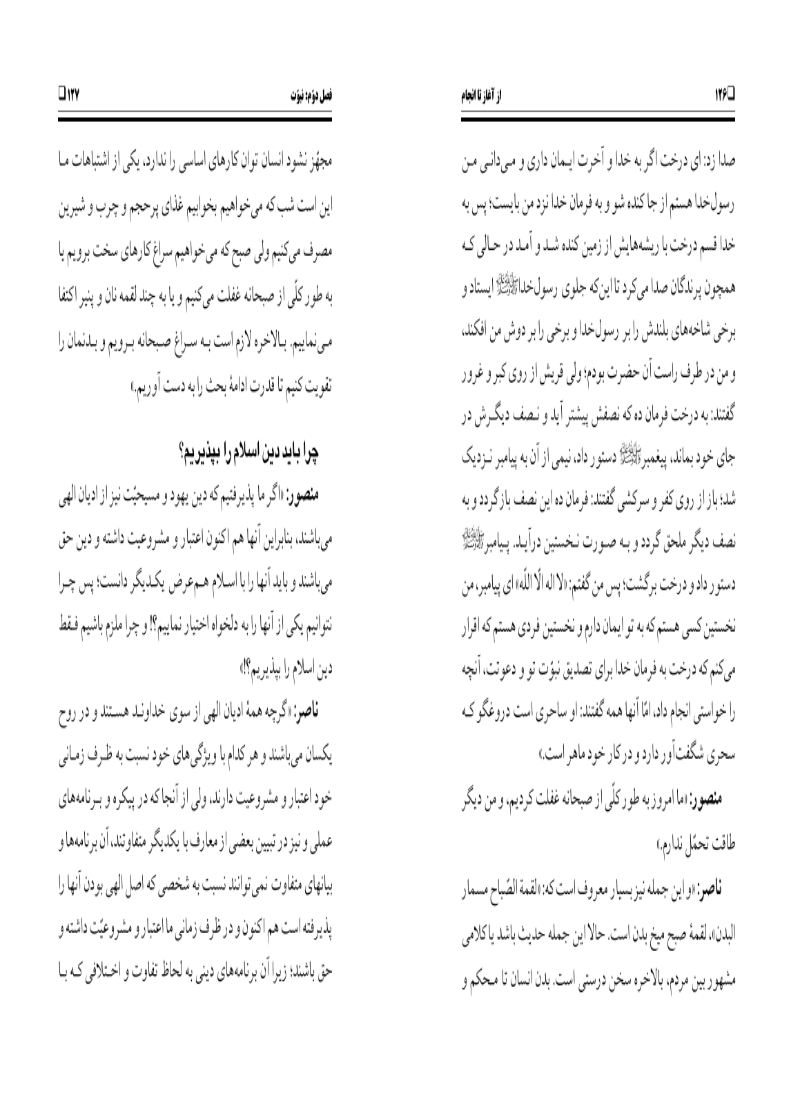 ❑۱۲۶ از آغاز تا انجام
صدا زد: ای درخت اگر به خدا و آخرت ایـمان داری و مـی‌دانـی مـن
رسول‌خدا هستم از جا کنده شو و به فرمان خدا نزد من بایست؛ پس به
خدا قسم درخت با ریشه‌هایش از زمین کنده شـد و آمـد در حـالی کـه
همچون پرندگان صدا می‌کرد تا این‌که جلوی رسول‌خداﷺ ایستاد و
برخی شاخه‌های بلندش را بر رسول‌خدا و برخی را بر دوش من افکند،
و من در طرف راست آن حضرت بودم؛ ولی قریش از روی کبر و غرور
گفتند: به درخت فرمان ده که نصفش پیشتر آید و نـصف دیگـرش در
جای خود بماند، پیغمبرﷺ دستور داد، نیمی از آن به پیامبر نـزدیک
شد؛ باز از روی کفر و سرکشی گفتند: فرمان ده این نصف بازگردد و به
نصف دیگر ملحق گردد و بـه صـورت نـخستین درآیـد. پـیامبرﷺ
دستور داد و درخت برگشت؛ پس من گفتم: «لا اله الّا اللّه» ای پیامبر، من
نخستین کسی هستم که به تو ایمان دارم و نخستین فردی هستم که اقرار
می‌کنم که درخت به فرمان خدا برای تصدیق نبوّت تو و دعوتت، آنچه
را خواستی انجام داد، امّا آنها همه گفتند: او ساحری است دروغگو کـه
سحری شگفت‌آور دارد و در کار خود ماهر است.»
منصور: «ما امروز به طور کلّی از صبحانه غفلت کردیم، و من دیگر
طاقت تحمّل ندارم.»
ناصر: «و این جمله نیز بسیار معروف است که: «لقمة الصّباح مسمار
البدن»، لقمۀ صبح میخ بدن است. حالا این جمله حدیث باشد یا کلامی
مشهور بین مردم، بالاخره سخن درستی است. بدن انسان تا مـحکم و
فصل دوّم: نبوّت ۱۲۷❑
مجهّز نشود انسان توان کارهای اساسی را ندارد، یکی از اشتباهات مـا
این است شب که می‌خواهیم بخوابیم غذای پرحجم و چرب و شیرین
مصرف می‌کنیم ولی صبح که می‌خواهیم سراغ کارهای سخت برویم یا
به طور کلّی از صبحانه غفلت می‌کنیم و یا به چند لقمه نان و پنیر اکتفا
مـی‌نماییم. بـالاخره لازم است بـه سـراغ صـبحانه بـرویم و بـدنمان را
تقویت کنیم تا قدرت ادامۀ بحث را به دست آوریم.»
چرا باید دین اسلام را بپذیریم؟
منصور: «اگر ما پذیرفتیم که دین یهود و مسیحیّت نیز از ادیان الهی
می‌باشند، بنابراین آنها هم اکنون اعتبار و مشروعیت داشته و دین حق
می‌باشند و باید آنها را با اسـلام هـم‌عرض یکـدیگر دانست؛ پس چـرا
نتوانیم یکی از آنها را به دلخواه اختیار نماییم؟! و چرا ملزم باشیم فـقط
دین اسلام را بپذیریم؟!»
ناصر: «گرچه همۀ ادیان الهی از سوی خداونـد هسـتند و در روح
یکسان می‌باشند و هر کدام با ویژگی‌های خود نسبت به ظـرف زمـانی
خود اعتبار و مشروعیت دارند، ولی از آنجا که در پیکره و بـرنامه‌های
عملی و نیز در تبیین بعضی از معارف با یکدیگر متفاوتند، آن برنامه‌ها و
بیانهای متفاوت نمی‌توانند نسبت به شخصی که اصل الهی بودن آنها را
پذیرفته است هم اکنون و در ظرف زمانی ما اعتبار و مشروعیّت داشته و
حق باشند؛ زیرا آن برنامه‌های دینی به لحاظ تفاوت و اخـتلافی کـه بـا